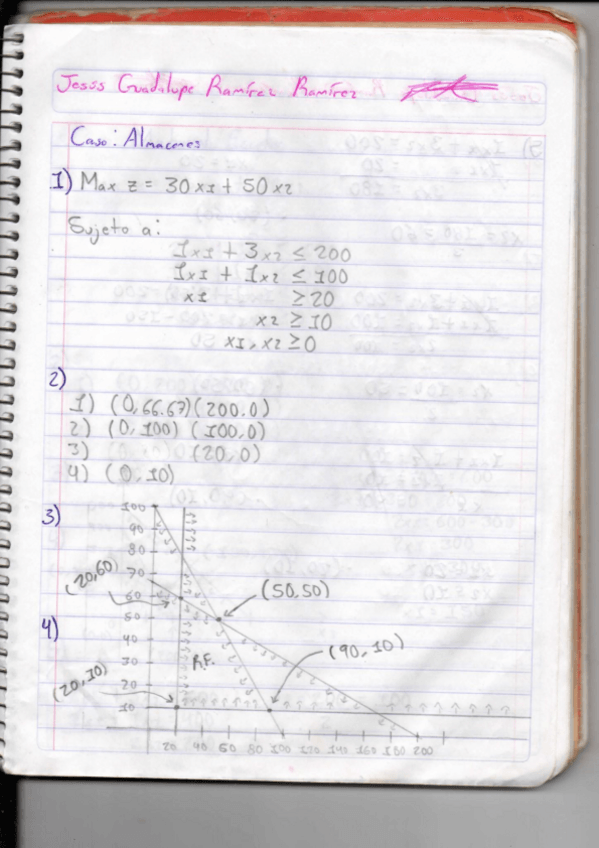 Jesús Guadalupe Ramírez Ramírez
Caso: Almacenes
1) Max z = 30x1 + 50x2
Sujeto a:
1x1 + 3x2 ≤ 200
1x1 + 1x2 ≤ 100
x1 ≥ 20
x2 ≥ 10
x1, x2 ≥ 0
2)
1) (0, 66.67) (200, 0)
2) (0, 100) (100, 0)
3) (20, 0)
4) (0, 10)
3)
100
90
80
70
60
50
40
30
20
10
(20,60)
(50,50)
4)
(90, 10)
R.F.
(20,10)
20 40 60 80 100 120 140 160 180 200